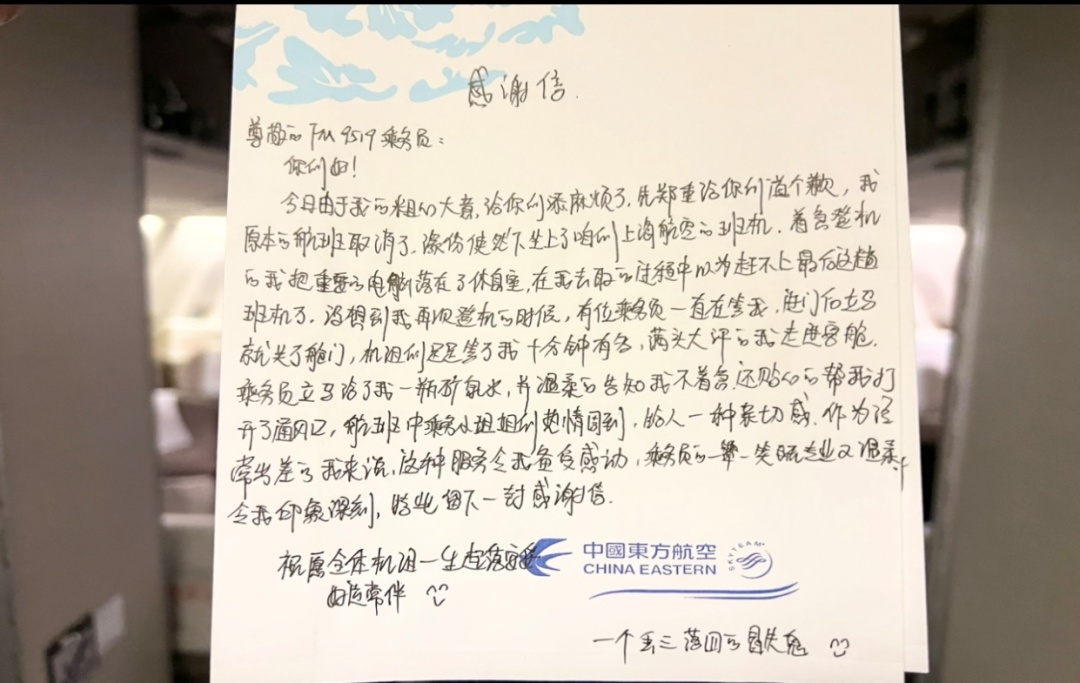 感谢信.
尊敬的FM9519乘务员：
你们好！
今日由于我的粗心大意,给你们添麻烦了,先郑重给你们道个歉，我
原本的航班取消了，缘份使然下坐上了咱们上海航空的班机，着急登机
的我把重要的电脑落在了休息室,在我去取的过程中以为赶不上最后这趟
班机了，没想到我再次登机的时候，有位乘务员一直在等我，进门后立马
就关了舱门，机组们足足等了我十分钟有多，满头大汗的我走进客舱，
乘务员立马给了我一瓶矿泉水，并温柔的告知我不着急,还贴心的帮我打
开了通风口，航班中乘务小姐姐们热情周到，给人一种亲切感，作为经
常出差的我来说,这种服务令我备受感动，乘务员的一颦一笑既专业又温柔
令我印象深刻，特此留下一封感谢信.
祝愿全体机组一生起落安妥
好运常伴
中國東方航空
CHINA EASTERN
SKYTEAM
一个丢三落四的冒失鬼